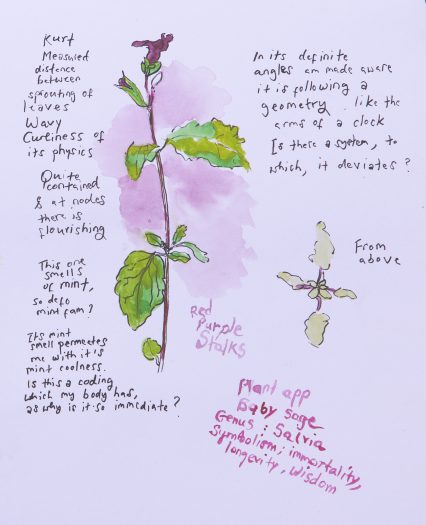 Kurt
Measured
distance
between
sprouting of
leaves
Wavy
Curliness of
its physics
Quite
contained
& at nodes
there is
flourishing
This one
smells
of mint,
so defo
mint fam?
Its mint
smell permeates
me with it's
mint coolness.
Is this a coding
which my body has,
as why is it so immediate?
In its definite
angles am made aware
it is following a
geometry like the
arms of a clock
Is there a system, to
which, it deviates?
From
above
Red
Purple
Stalks
Plant app
Baby Sage
Genus: Salvia
Symbolism; immortality,
longevity, wisdom